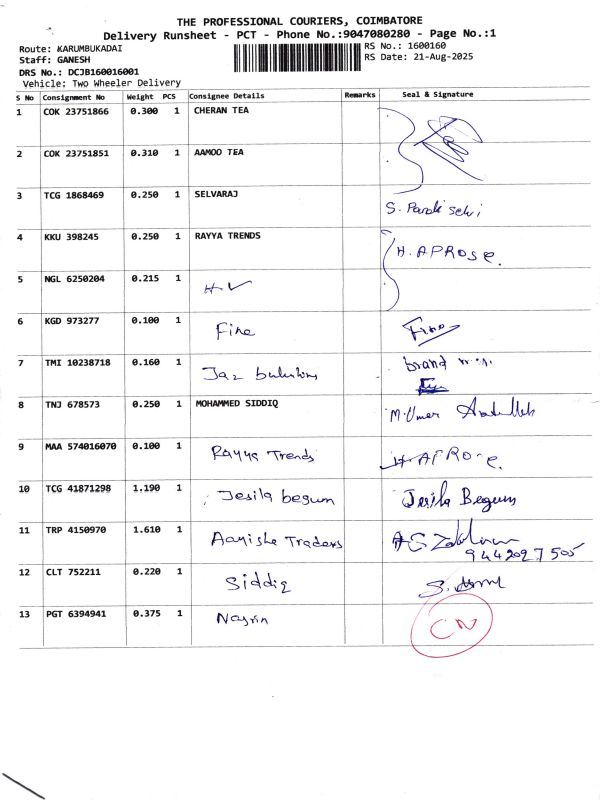 THE PROFESSIONAL COURIERS, COIMBATORE
Delivery Runsheet - PCT - Phone No.:9047080280 - Page No.:1
Route: KARUMBUKADAI
RS No.: 1600160
Staff: GANESH
RS Date: 21-Aug-2025
DRS No.: DCJB160016001
Vehicle: Two Wheeler Delivery
S No Consignment No Weight PCS Consignee Details Remarks Seal & Signature
1 COK 23751866 0.300 1 CHERAN TEA
2 COK 23751851 0.310 1 AAMOO TEA
3 TCG 1868469 0.250 1 SELVARAJ S. Pandi selvi
4 KKU 398245 0.250 1 RAYYA TRENDS H. APROSE.
5 NGL 6250204 0.215 1
6 KGD 973277 0.100 1 Fine Fine
7 TMI 10238718 0.160 1 Jaz brand
8 TNJ 678573 0.250 1 MOHAMMED SIDDIQ M. Umer
9 MAA 574016070 0.100 1 Rayya Trends H APROSE.
10 TCG 41871298 1.190 1 Jesila begum Jesila Begum
11 TRP 4150970 1.610 1 Aayisha Traders
9442027505
12 CLT 752211 0.220 1 Siddiq
13 PGT 6394941 0.375 1 Nasrin CN